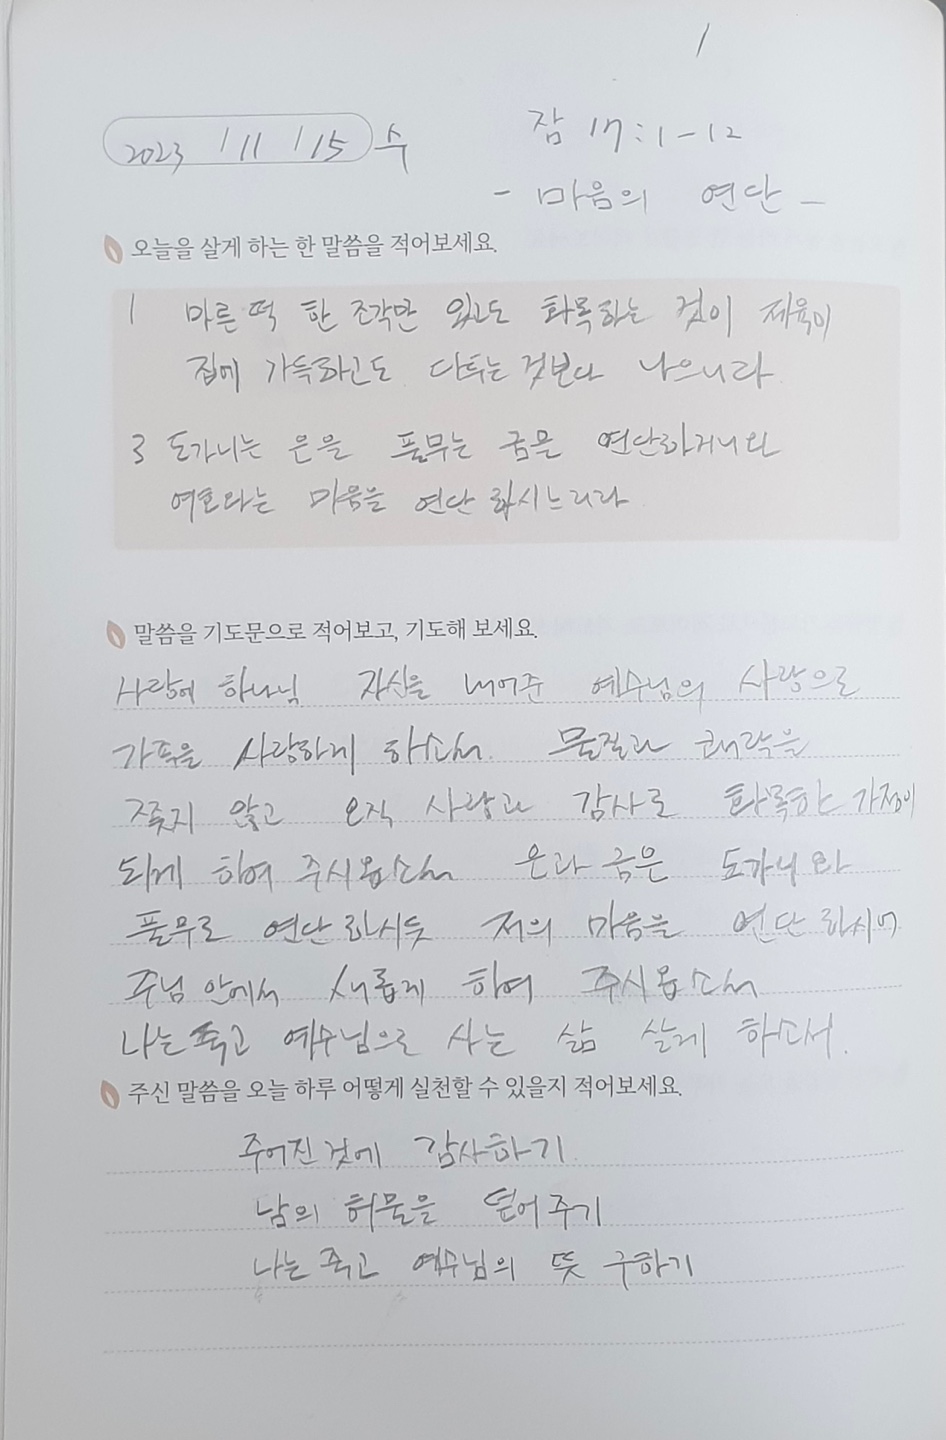 1
2023 / 11 / 15 수
잠 17 : 1 - 12
- 마음의 연단 -
오늘을 살게 하는 한 말씀을 적어보세요.
1 마른 떡 한 조각만 있고도 화목하는 것이 제육이
집에 가득하고도 다투는 것보다 나으니라
3 도가니는 은을 풀무는 금을 연단하거니와
여호와는 마음을 연단 하시느니라
말씀을 기도문으로 적어보고, 기도해 보세요.
사랑에 하나님 자신을 내어준 예수님의 사랑으로
가족을 사랑하게 하소서. 물질과 쾌락을
쫓지 않고 오직 사랑과 감사로 화목한 가정이
되게 하여 주시옵소서 은과 금은 도가니와
풀무로 연단 하시듯 저의 마음을 연단 하시어
주님 안에서 새롭게 하여 주시옵소서
나는 죽고 예수님으로 사는 삶 살게 하소서.
주신 말씀을 오늘 하루 어떻게 실천할 수 있을지 적어보세요.
주어진 것에 감사하기
남의 허물을 덮어 주기
나는 죽고 예수님의 뜻 구하기